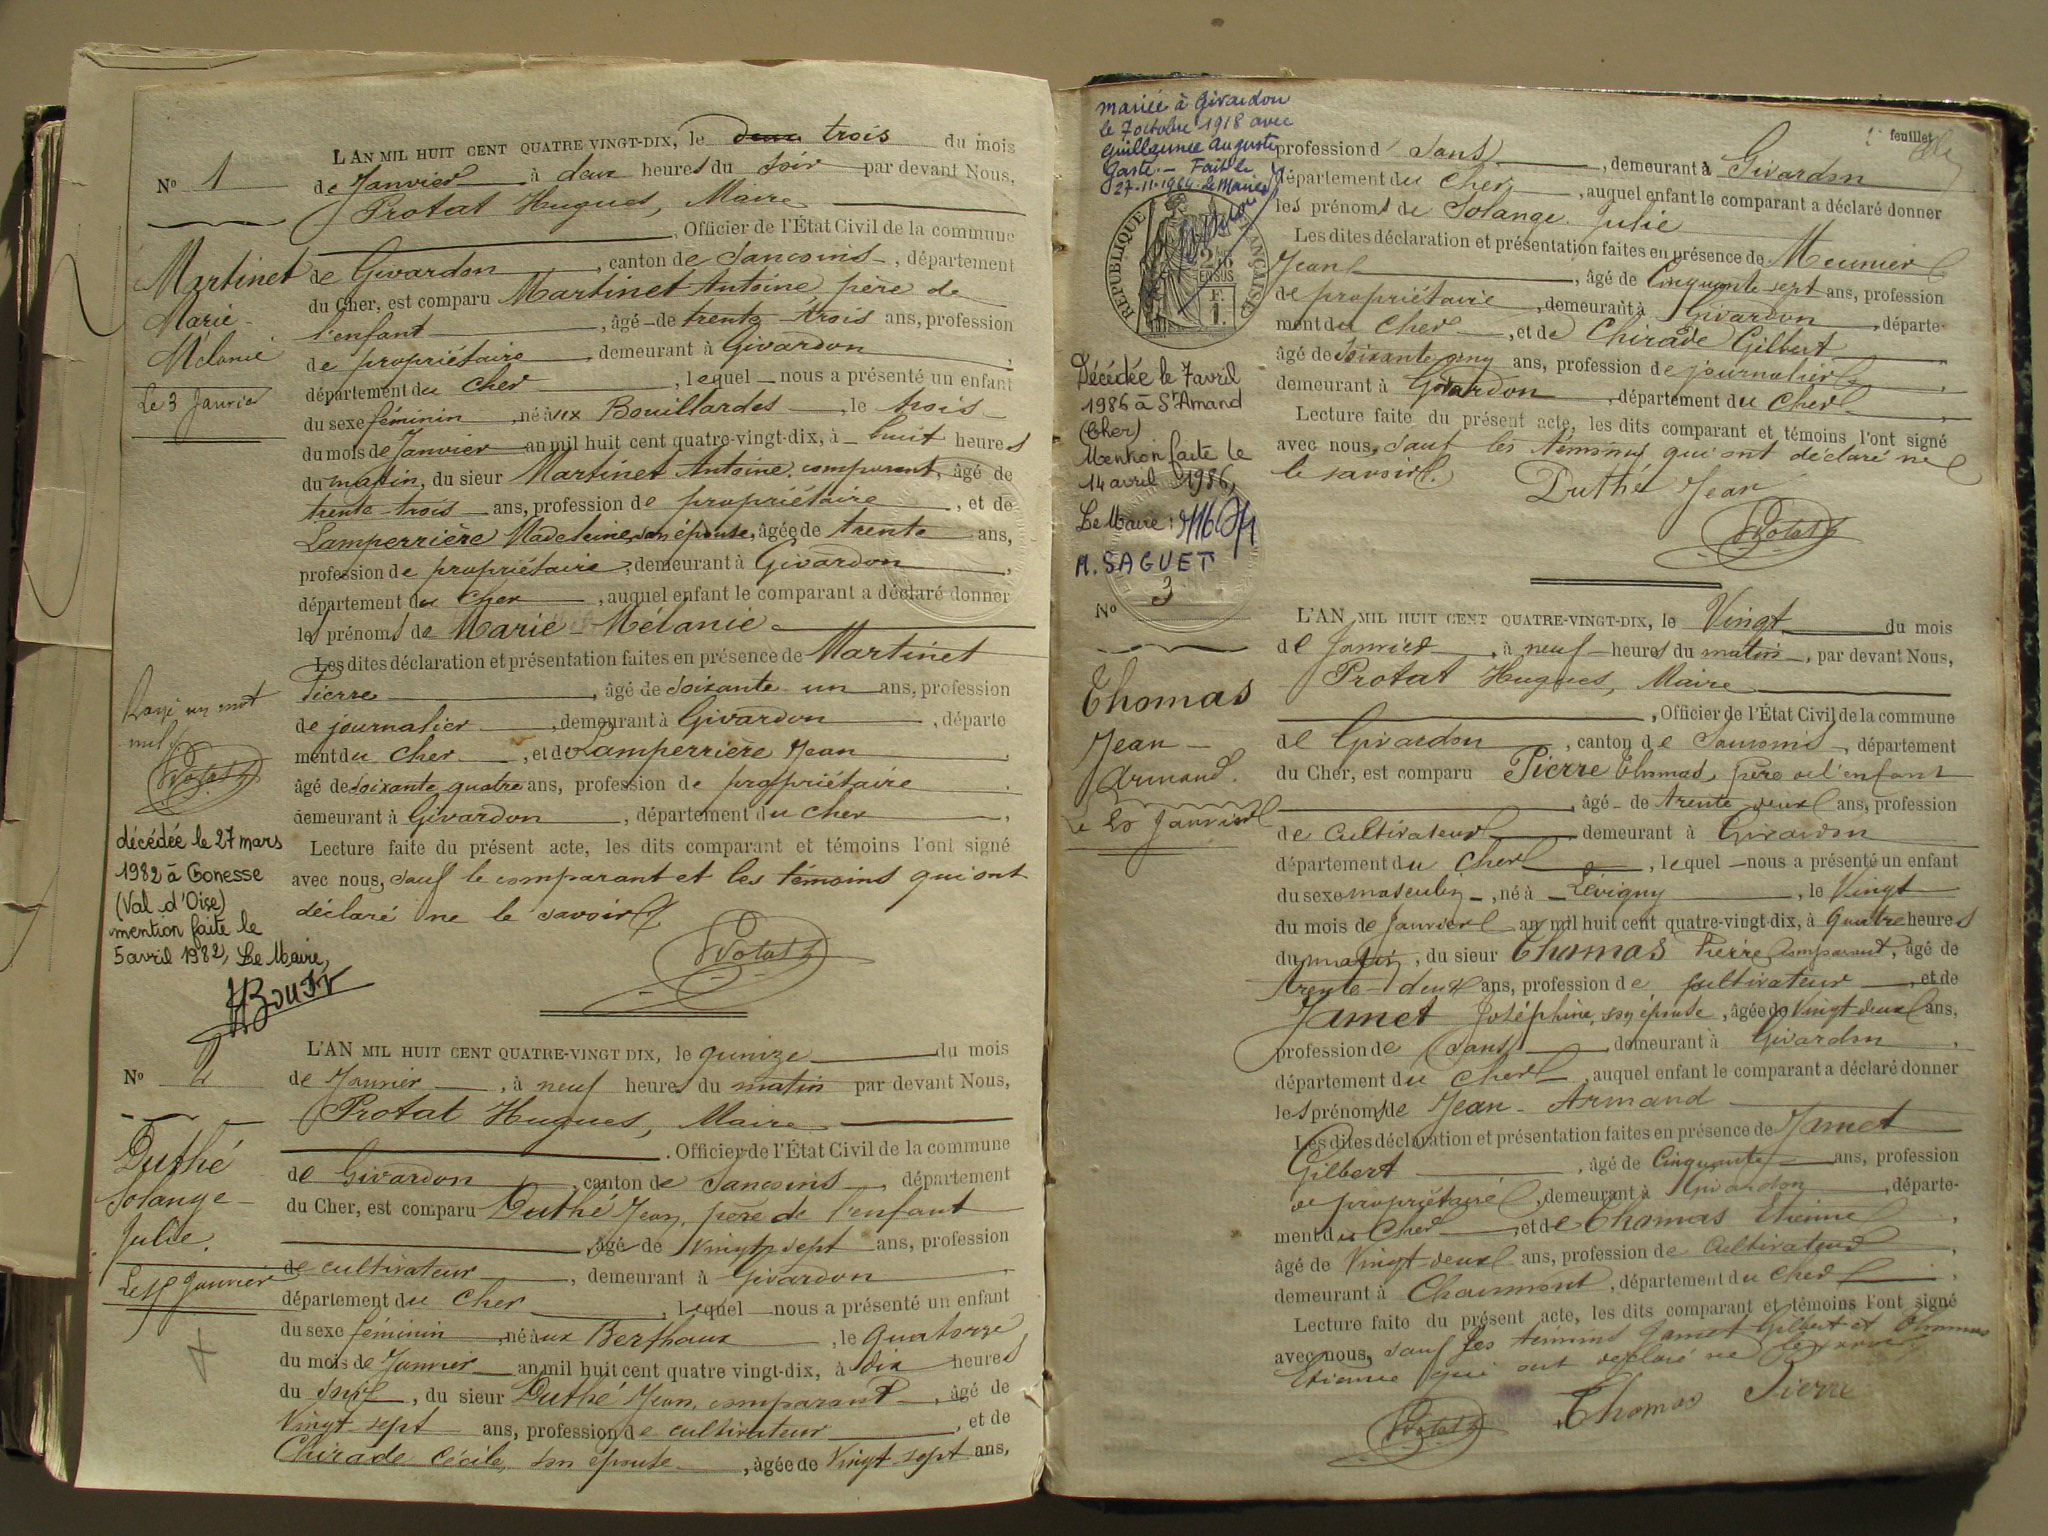 L'AN MIL HUIT CENT QUATRE-VINGT-DIX, le deux trois du mois
No 1
de Janvier à deux heures du soir par devant Nous,
Protat Hugues, Maire
, Officier de l'État Civil de la commune
Martinet
Marie
Mélanie
Le 3 Janvier
de Givardon, canton de Sancoins, département
du Cher, est comparu Martinet Antoine père de
l'enfant, âgé de trente trois ans, profession
de propriétaire, demeurant à Givardon,
département du Cher, lequel nous a présenté un enfant
du sexe féminin, né aux Bouillardes, le trois
du mois de Janvier an mil huit cent quatre-vingt-dix, à huit heures
du matin, du sieur Martinet Antoine comparant, âgé de
trente-trois ans, profession de propriétaire, et de
Lamperrière Madeleine, son épouse, âgée de trente ans,
profession de propriétaire, demeurant à Givardon,
département du Cher, auquel enfant le comparant a déclaré donner
les prénoms de Marie Mélanie
Les dites déclaration et présentation faites en présence de Martinet
Pierre, âgé de soixante un ans, profession
de journalier, demeurant à Givardon, départe
ment du Cher, et de Lamperrière Jean,
âgé de soixante quatre ans, profession de propriétaire
demeurant à Givardon, département du Cher,
Lecture faite du présent acte, les dits comparant et témoins l'ont signé
avec nous, sauf le comparant et les témoins qui ont
déclaré ne le savoir
Protat
Rayé un mot
nul
Protat
décédée le 27 mars
1982 à Gonesse
(Val d'Oise)
mention faite le
5 avril 1982, Le Maire,
L'AN MIL HUIT CENT QUATRE-VINGT DIX, le quinze du mois
No 2
de Janvier, à neuf heures du matin par devant Nous,
Protat Hugues, Maire
. Officier de l'État Civil de la commune
Duthé
Solange
Julie.
Le 15 Janvier
de Givardon, canton de Sancoins, département
du Cher, est comparu Duthé Jean, père de l'enfant
âgé de vingt sept ans, profession
de cultivateur, demeurant à Givardon
département du Cher, lequel nous a présenté un enfant
du sexe féminin, né aux Berthaux, le quatorze
du mois de Janvier an mil huit cent quatre vingt-dix, à dix heures
du soir, du sieur Duthé Jean, comparant, âgé de
Vingt sept ans, profession de cultivateur, et de
Chirade Cécile, son épouse, âgée de Vingt sept ans,
mariée à Givardon
le 7 octobre 1918 avec
Guillaume Auguste
Gaste. - Fait le
27-11-1964. Le Maire
RÉPUBLIQUE FRANÇAISE
EN SUS
F.
1.
feuillet
profession d sans, demeurant à Givardon
département du Cher, auquel enfant le comparant a déclaré donner
les prénoms de Solange Julie
Les dites déclaration et présentation faites en présence de Meunier
Jean, âgé de Cinquante sept ans, profession
de propriétaire, demeurant à Givardon, départe-
ment du Cher, et de Chirade Gilbert
âgé de soixante cinq ans, profession de journalier,
demeurant à Givardon, département du Cher,
Lecture faite du présent acte, les dits comparant et témoins l'ont signé
avec nous, sauf les témoins qui ont déclaré ne
le savoir.
Duthé Jean
Protat
Décédée le 7 avril
1986 à St Amand
(Cher)
Mention faite le
14 avril 1986,
Le Maire:
M. SAGUET
No 3
Thomas
Jean
Armand.
Le 20 Janvier
L'AN MIL HUIT CENT QUATRE-VINGT-DIX, le Vingt du mois
de Janvier, à neuf heures du matin, par devant Nous,
Protat Hugues, Maire
, Officier de l'État Civil de la commune
de Givardon, canton de Sancoins, département
du Cher, est comparu Pierre Thomas, père de l'enfant
, âgé de trente deux ans, profession
de cultivateur demeurant à Givardon
département du Cher, lequel nous a présenté un enfant
du sexe masculin, né à Lévigny, le Vingt
du mois de Janvier an mil huit cent quatre-vingt-dix, à Quatre heures
du matin, du sieur Thomas Pierre Comparant, âgé de
trente-deux ans, profession de cultivateur, et de
Jamet Joséphine, son épouse, âgée de Vingt deux ans,
profession de sans, demeurant à Givardon,
département du Cher, auquel enfant le comparant a déclaré donner
les prénoms de Jean-Armand
Les dites déclaration et présentation faites en présence de Jamet
Gilbert, âgé de Cinquante ans, profession
de propriétaire, demeurant à Givardon, départe-
ment du Cher, et de Thomas Etienne,
âgé de Vingt deux ans, profession de Cultivateur,
demeurant à Chaumont, département du Cher.
Lecture faite du présent acte, les dits comparant et témoins l'ont signé
avec nous, sauf les témoins Jamet Gilbert et Thomas
Etienne qui ont déclaré ne le savoir
Thomas Pierre
Protat